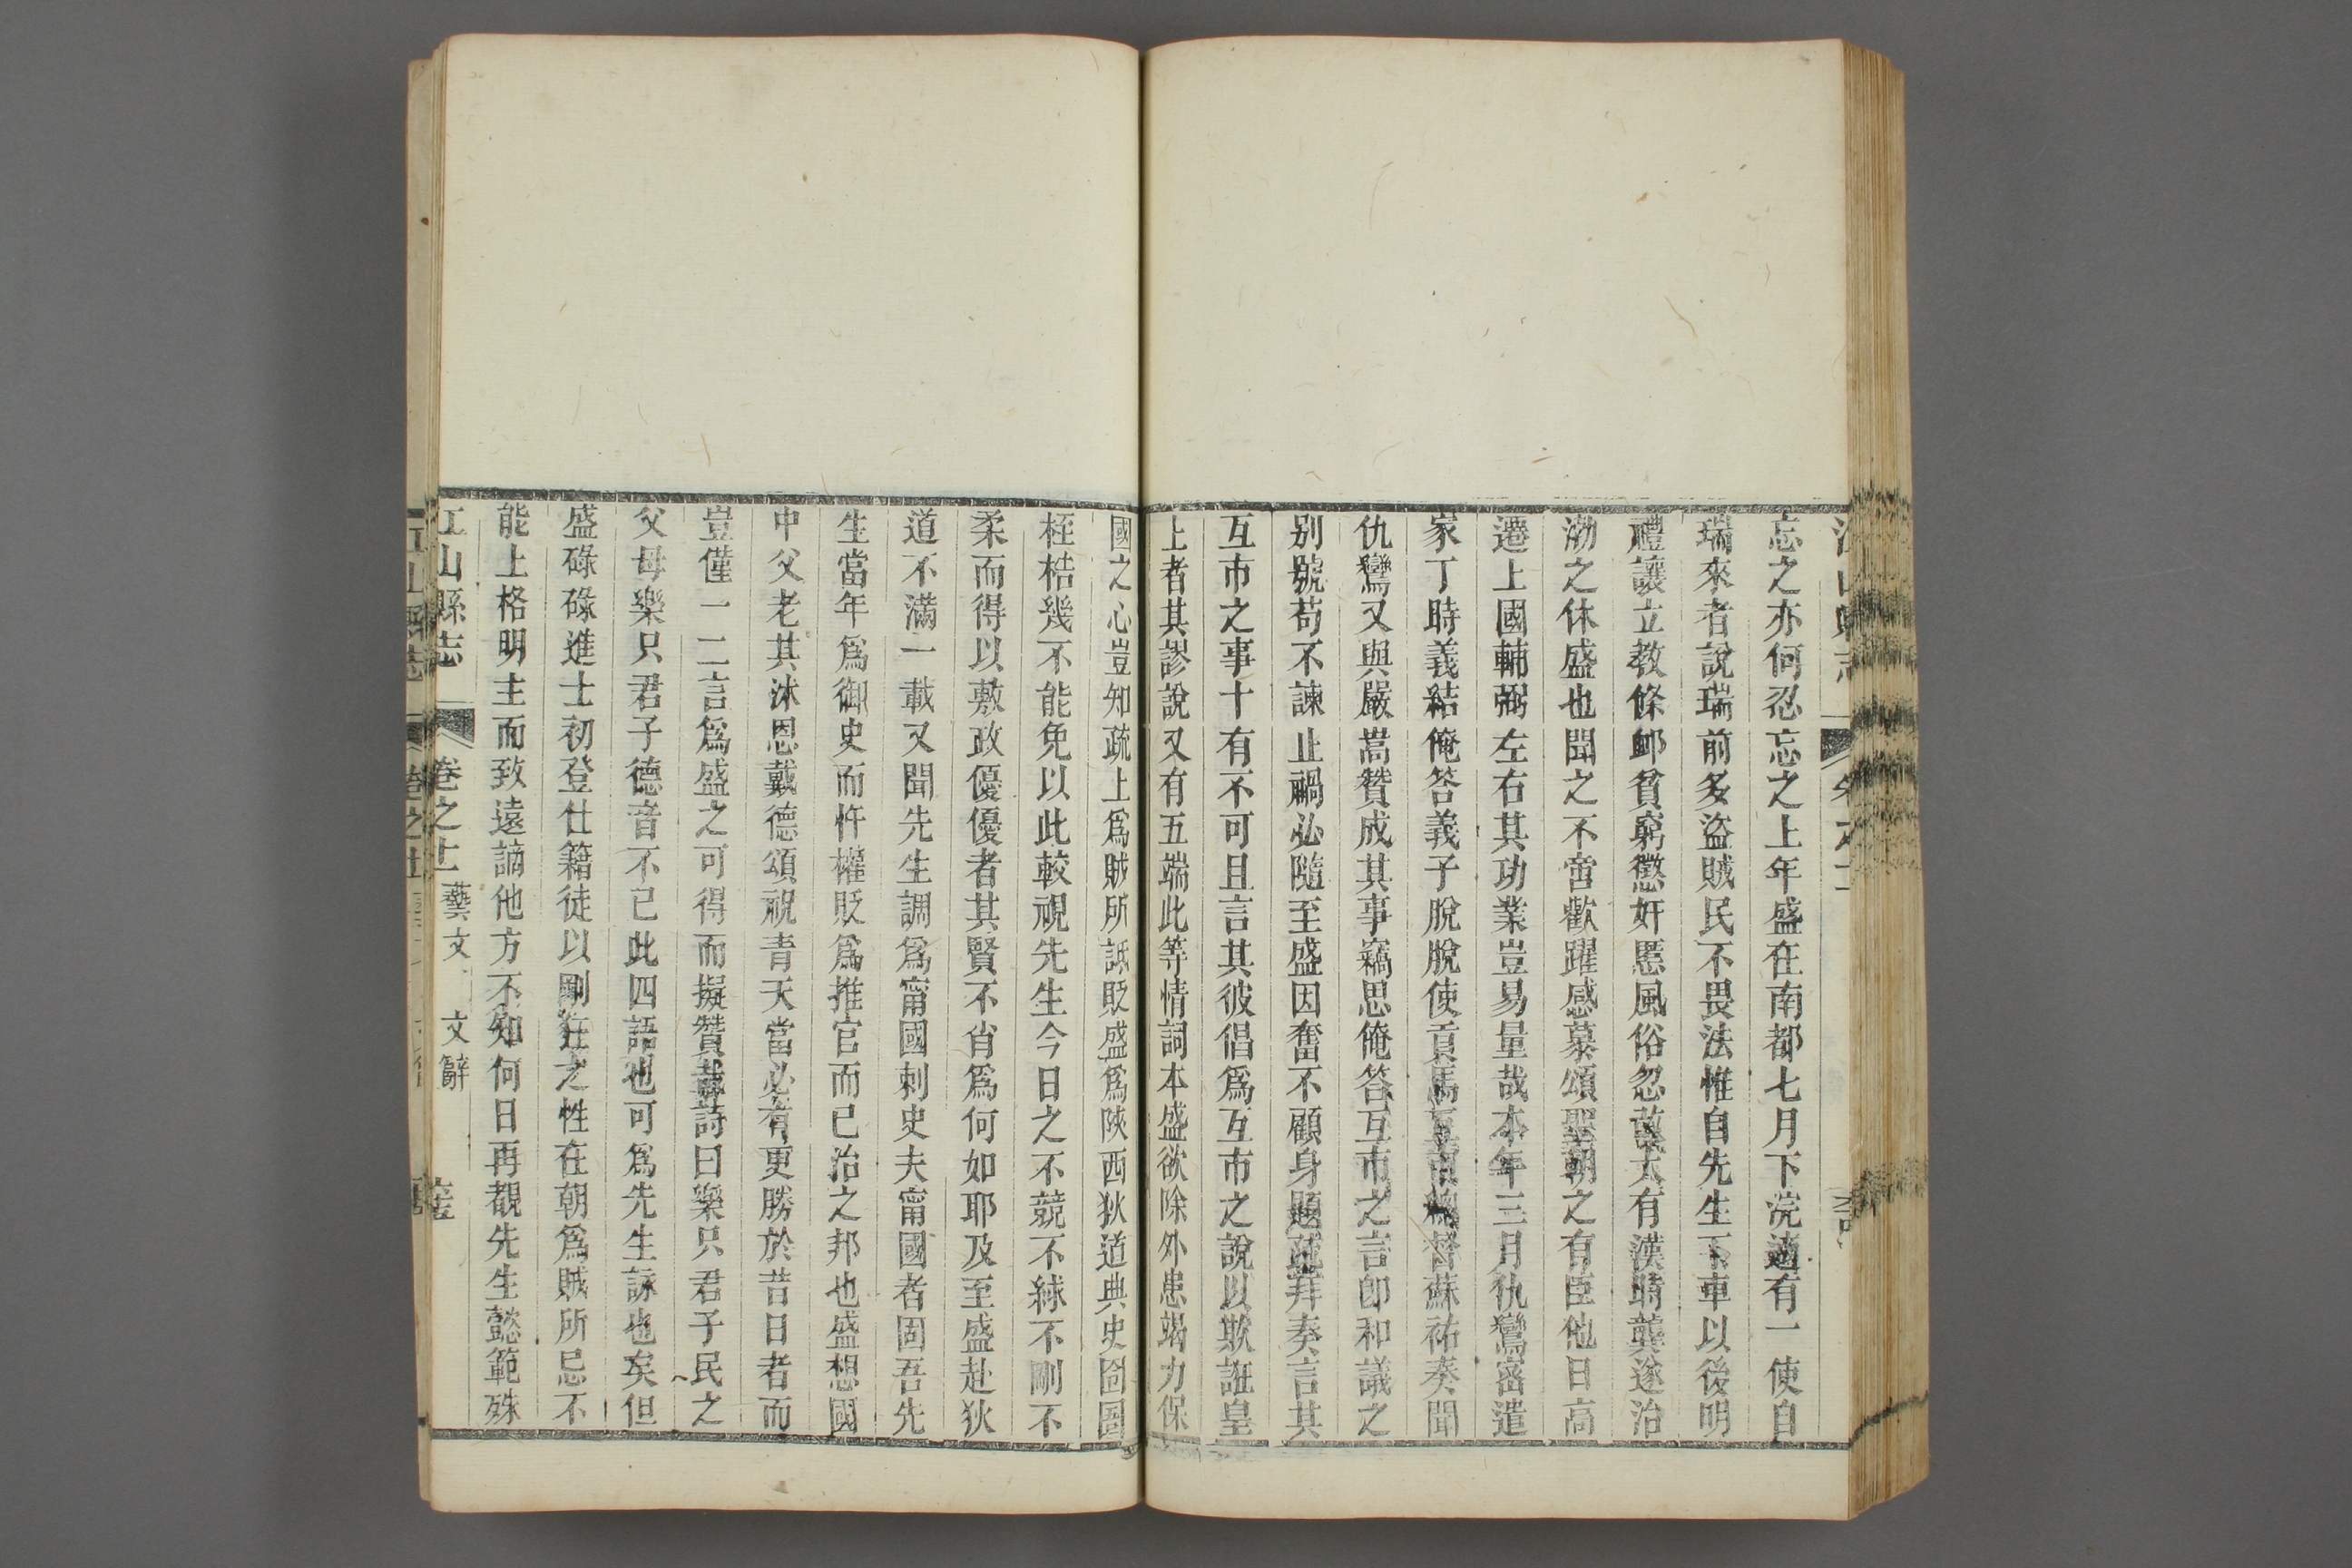 忘之亦何忍忘之上年盛在南都七月下浣適有一使自
瑞來者說瑞前多盜賊民不畏法惟自先生下車以後明
禮讓立教條邺貧窮懲奸惡風俗忽萬大有漢時龔遂治
渤之休盛也聞之不啻歡躍感慕頌聖朝之有臣他日高
遷上國輔弼左右其功業豈易量哉本年三月仇鸞密遣
家丁時義結俺答義子脫脫使貢馬互市總督蘇祐奏聞
仇鸞又與嚴嵩贊成其事竊思俺答互市之言卽和議之
别號苟不諫止禍必隨至盛因奮不顧身題疏拜奏言其
互市之事十有不可且言其彼倡爲互市之說以欺誑皇
上者其謬說又有五端此等情詞本盛欲除外患竭力保
國之心豈知疏上爲賊所詆貶盛爲陝西狄道典史囹圄
桎梏幾不能免以此較視先生今日之不競不絿不剛不
柔而得以敷政優優者其賢不肖爲何如耶及至盛赴狄
道不滿一載又聞先生調爲甯國刺史夫甯國者固吾先
生當年爲御史而忤權貶爲推官而已治之邦也盛想國
中父老其沐恩戴德頌祝青天當必有更勝於昔日者而
豈僅一二言爲盛之可得而擬贊哉詩曰樂只君子民之
父母樂只君子德音不已此四語也可爲先生詠也矣但
盛碌碌進士初登仕籍徒以剛狂之性在朝爲賊所忌不
能上格明主而致遠謫他方不知何日再覩先生懿範殊
江山縣志 卷之十一 藝文 文辭